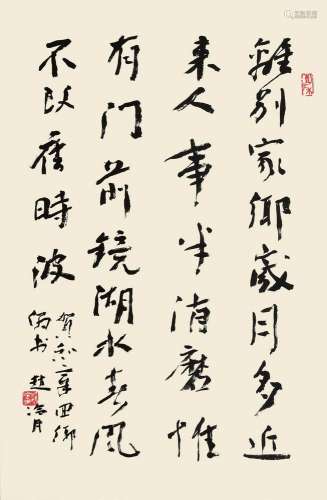 離别家鄉歲月多近
来人事半消磨惟
有门前鏡湖水春风
不改舊時波
賀知章回鄉
偶书 趙冷月